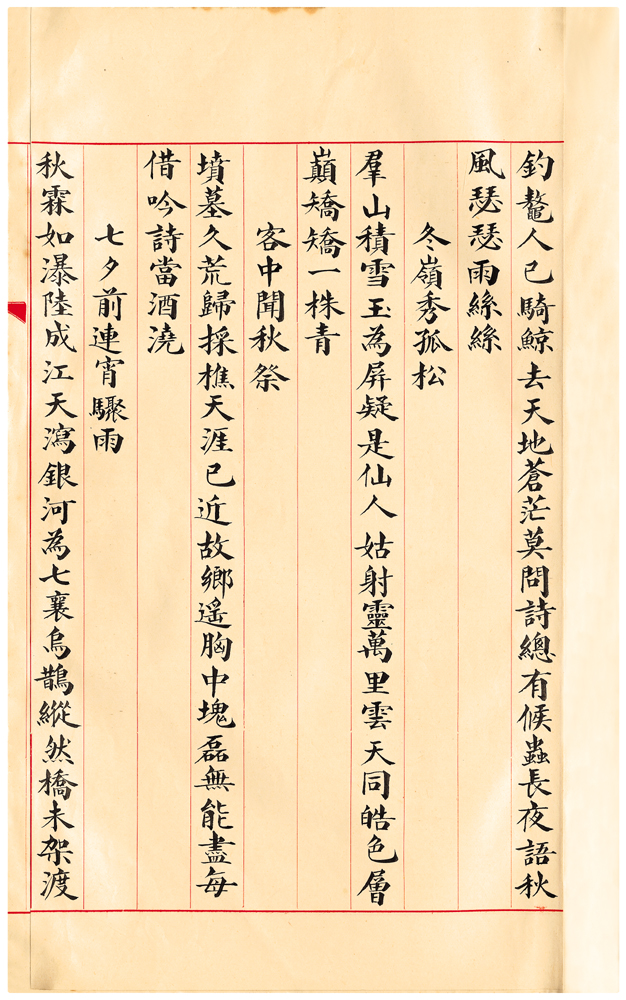 釣鼇人已騎鯨去天地蒼茫莫問詩總有候蟲長夜語秋
風瑟瑟雨絲絲
冬嶺秀孤松
羣山積雪玉為屏疑是仙人姑射靈萬里雲天同皓色層
巔矯矯一株青
客中聞秋祭
墳墓久荒歸採樵天涯已近故鄉遥胸中塊磊無能盡每
借吟詩當酒澆
七夕前連宵驟雨
秋霖如瀑陸成江天瀉銀河為七襄烏鵲縱然橋未架渡